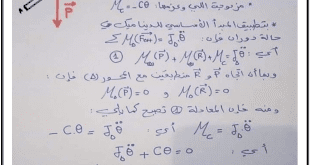 P
مزدوجة اللي وعزمها: M_C = -Cθ
بتطبيق المبدأ الأساسي للديناميك في
حالة دوران فإن: M_Δ(F_ext) = J_Δ θ̈
أي: M_Δ(P) + M_Δ(R) + M_C = J_Δ θ̈ ①
وبما أن اتجاه P و R منطبقين مع المحور (Δ) فإن:
M_Δ(P) = 0 و M_Δ(R) = 0
ومنه فإن المعادلة ① تصبح كما يلي:
M_C = J_Δ θ̈ أي: -Cθ = J_Δ θ̈
أي: J_Δ θ̈ + Cθ = 0